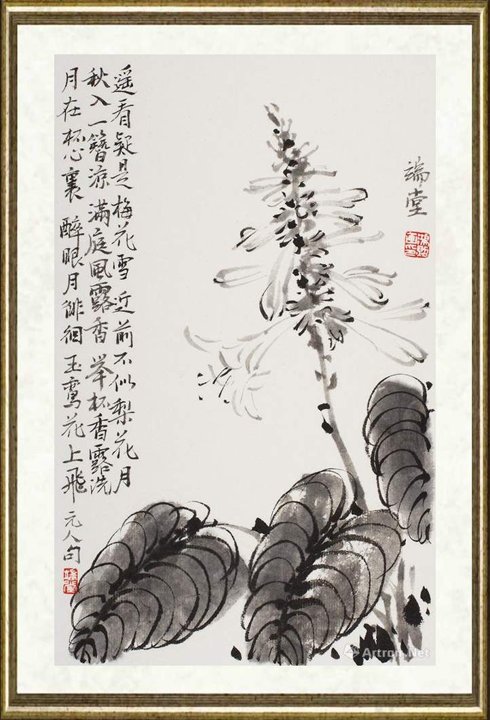 遥看疑是梅花雪近前不似梨花月
秋入一簪凉满庭風露香举杯香露洗
月在杯心裏醉眼月徘徊玉鸾花上飛元人句
端堂
Artron.Net